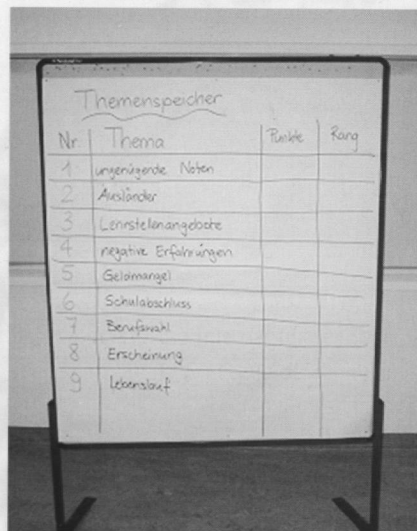 Themenspeicher
Nr. Thema Punkte Rang
1 ungenügende Noten
2 Ausländer
3 Lehrstellenangebote
4 negative Erfahrungen
5 Geldmangel
6 Schulabschluss
7 Berufswahl
8 Erscheinung
9 Lebenslauf